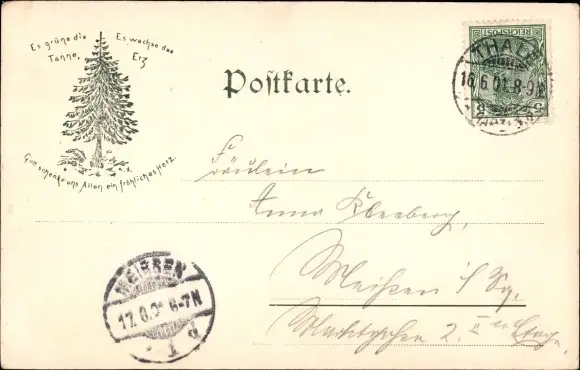 Es grüne die
Tanne,
Es wachse das
Erz
Gott schenke uns Allen ein fröhliches Herz.
Postkarte.
REICHSPOST
5 5
THALE
16.6.01. 8-9
Fräulein
Anna
Meißen i/Sa.
2. II
MEISSEN
17.6.01 6-7N